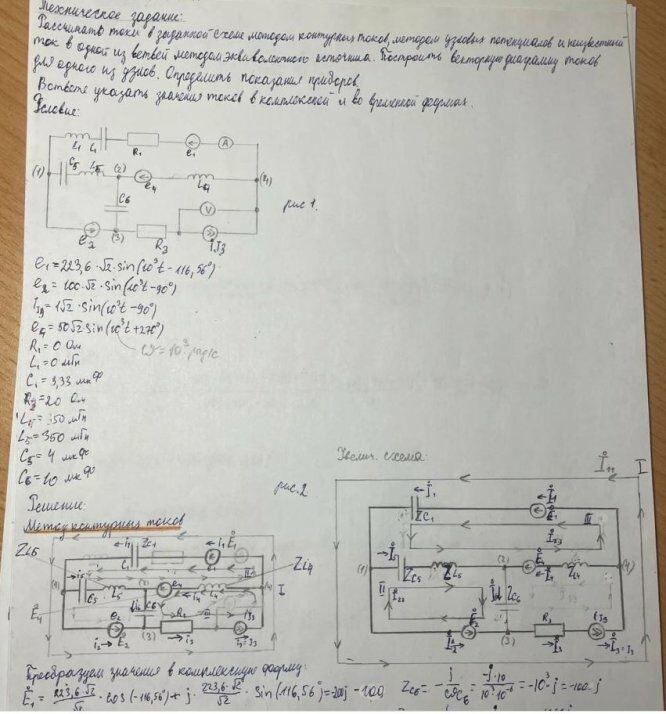 Техническое задание:
Рассчитать токи в заданной схеме методом контурных токов, методом узловых потенциалов и неизвестный
ток в одной из ветвей методом эквивалентного источника. Построить векторную диаграмму токов
для одного из узлов. Определить показания приборов.
В ответе указать значения токов в комплексной и во временной формах.
Условие:
L1 C1 R1 e1 A
(1) C5 L5 (2) e4 L4 (4)
C6 V
e2 (3) R3 iJ3
рис 1.
e1 = 223,6·√2·sin(10³t - 116,56°)
e2 = 100·√2·sin(10³t - 90°)
IJ3 = 1√2·sin(10³t - 90°)
e4 = 50√2 sin(10³t + 270°)
ω = 10³ рад/с
R1 = 0 Ом
L1 = 0 мГн
C1 = 3,33 мкФ
R3 = 20 Ом
L4 = 350 мГн
L5 = 350 мГн
C5 = 4 мкФ
C6 = 10 мкФ
Решение:
рис. 2
Увелич. схема:
Метод контурных токов
İ11 I
ZC6 İ1 ZC1 Ė1 ZL4
İ1 ZC1 Ė1 II
(1) C5 L5 e4 I
(1) İ5 ZC5 ZL5 (2) ZL4 (4)
Ė4 C6 R3 İJ3
II İ22 ZC6
i2 Ė2 (3) i3
Ė2 (3) R3 İ3
Преобразуем значения в комплексную форму:
Ė1 = 223,6·√2/√2 · cos(-116,56°) + j · 223,6·√2/√2 · sin(116,56°) = -200j - 100, ZC6 = -j/ωC6 = -j·10/10³·10⁻⁶ = -10³·j = -100·j